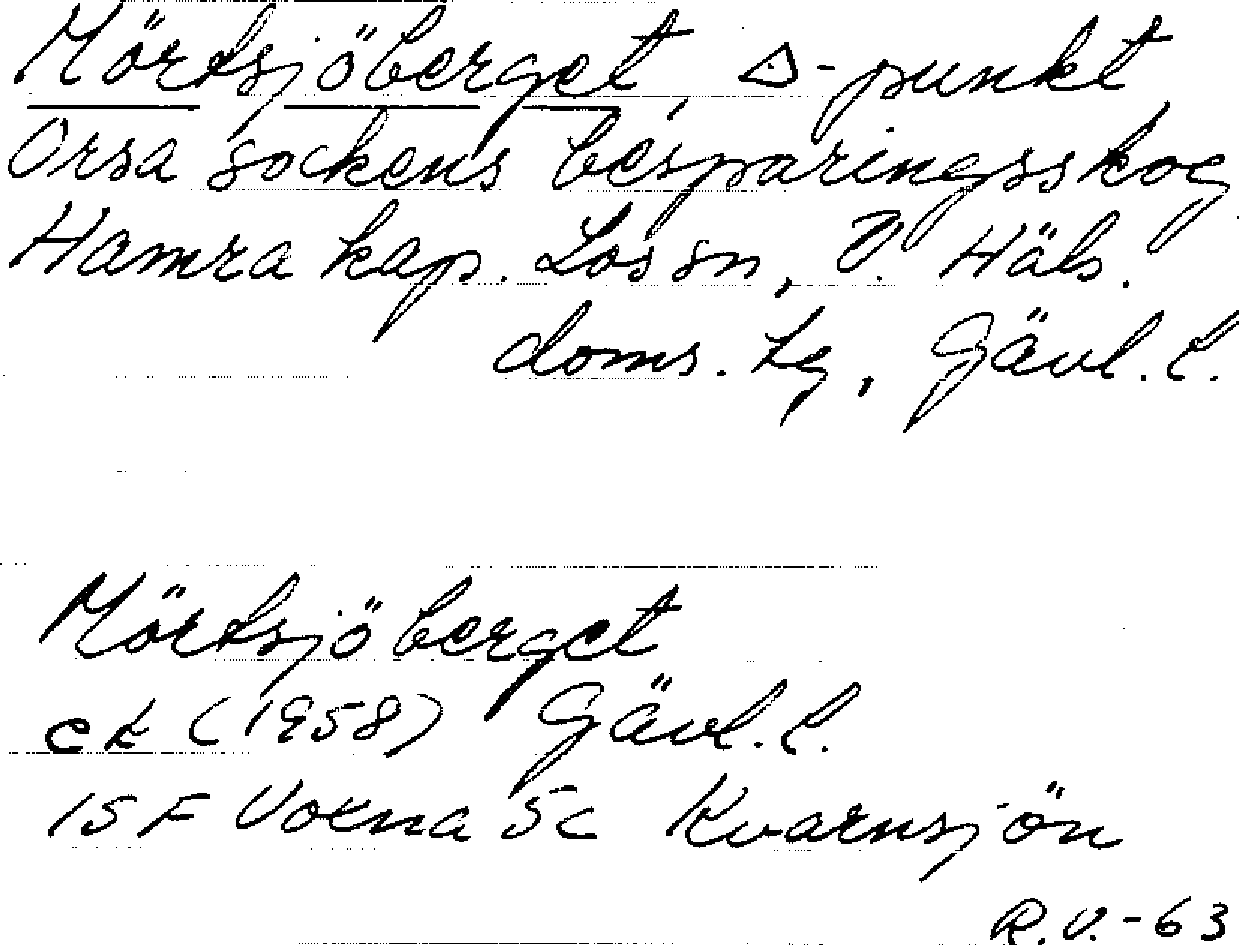 Mörtsjöberget, △-punkt
Orsa sockens besparingsskog
Hamra kap. Los sn, V. Häls.
doms. tg, Gävl. l.
Mörtsjöberget
ek (1958) Gävl. l.
15F Voxna 5c Kvarnsjön
R.V.-63